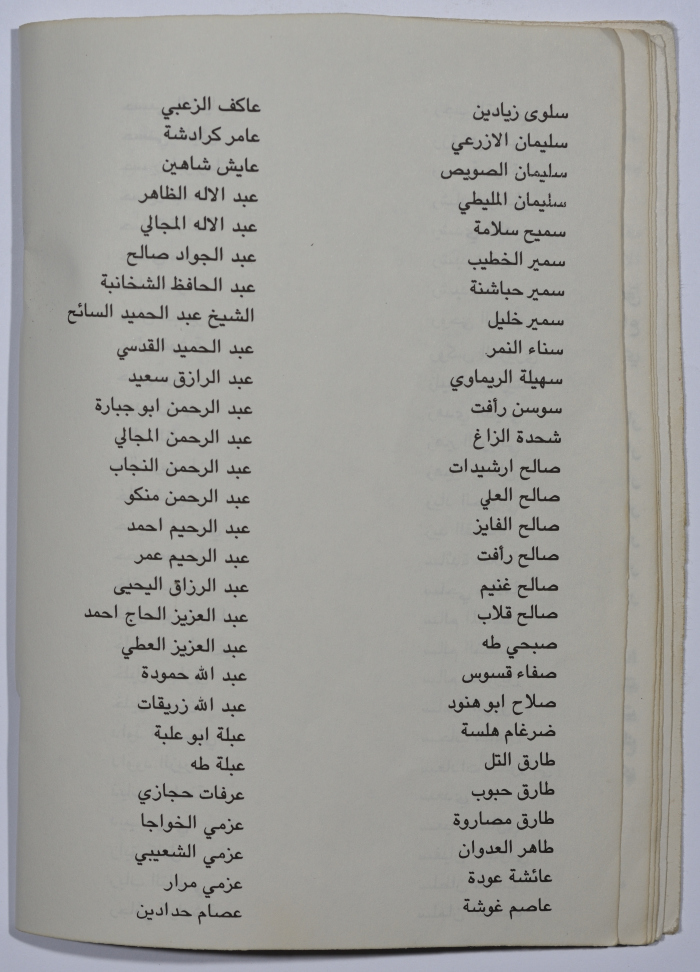 سلوى زيادين
سليمان الازرعي
سليمان الصويص
سليمان المليطي
سميح سلامة
سمير الخطيب
سمير حباشنة
سمير خليل
سناء النمر
سهيلة الريماوي
سوسن رأفت
شحدة الزاغ
صالح ارشيدات
صالح العلي
صالح الفايز
صالح رأفت
صالح غنيم
صالح قلاب
صبحي طه
صفاء قسوس
صلاح ابو هنود
ضرغام هلسة
طارق التل
طارق حبوب
طارق مصاروة
طاهر العدوان
عائشة عودة
عاصم غوشة
عاكف الزعبي
عامر كرادشة
عايش شاهين
عبد الاله الظاهر
عبد الاله المجالي
عبد الجواد صالح
عبد الحافظ الشخانبة
الشيخ عبد الحميد السائح
عبد الحميد القدسي
عبد الرازق سعيد
عبد الرحمن ابو جبارة
عبد الرحمن المجالي
عبد الرحمن النجاب
عبد الرحمن منكو
عبد الرحيم احمد
عبد الرحيم عمر
عبد الرزاق اليحيى
عبد العزيز الحاج احمد
عبد العزيز العطي
عبد الله حمودة
عبد الله زريقات
عبلة ابو علبة
عبلة طه
عرفات حجازي
عزمي الخواجا
عزمي الشعيبي
عزمي مرار
عصام حدادين